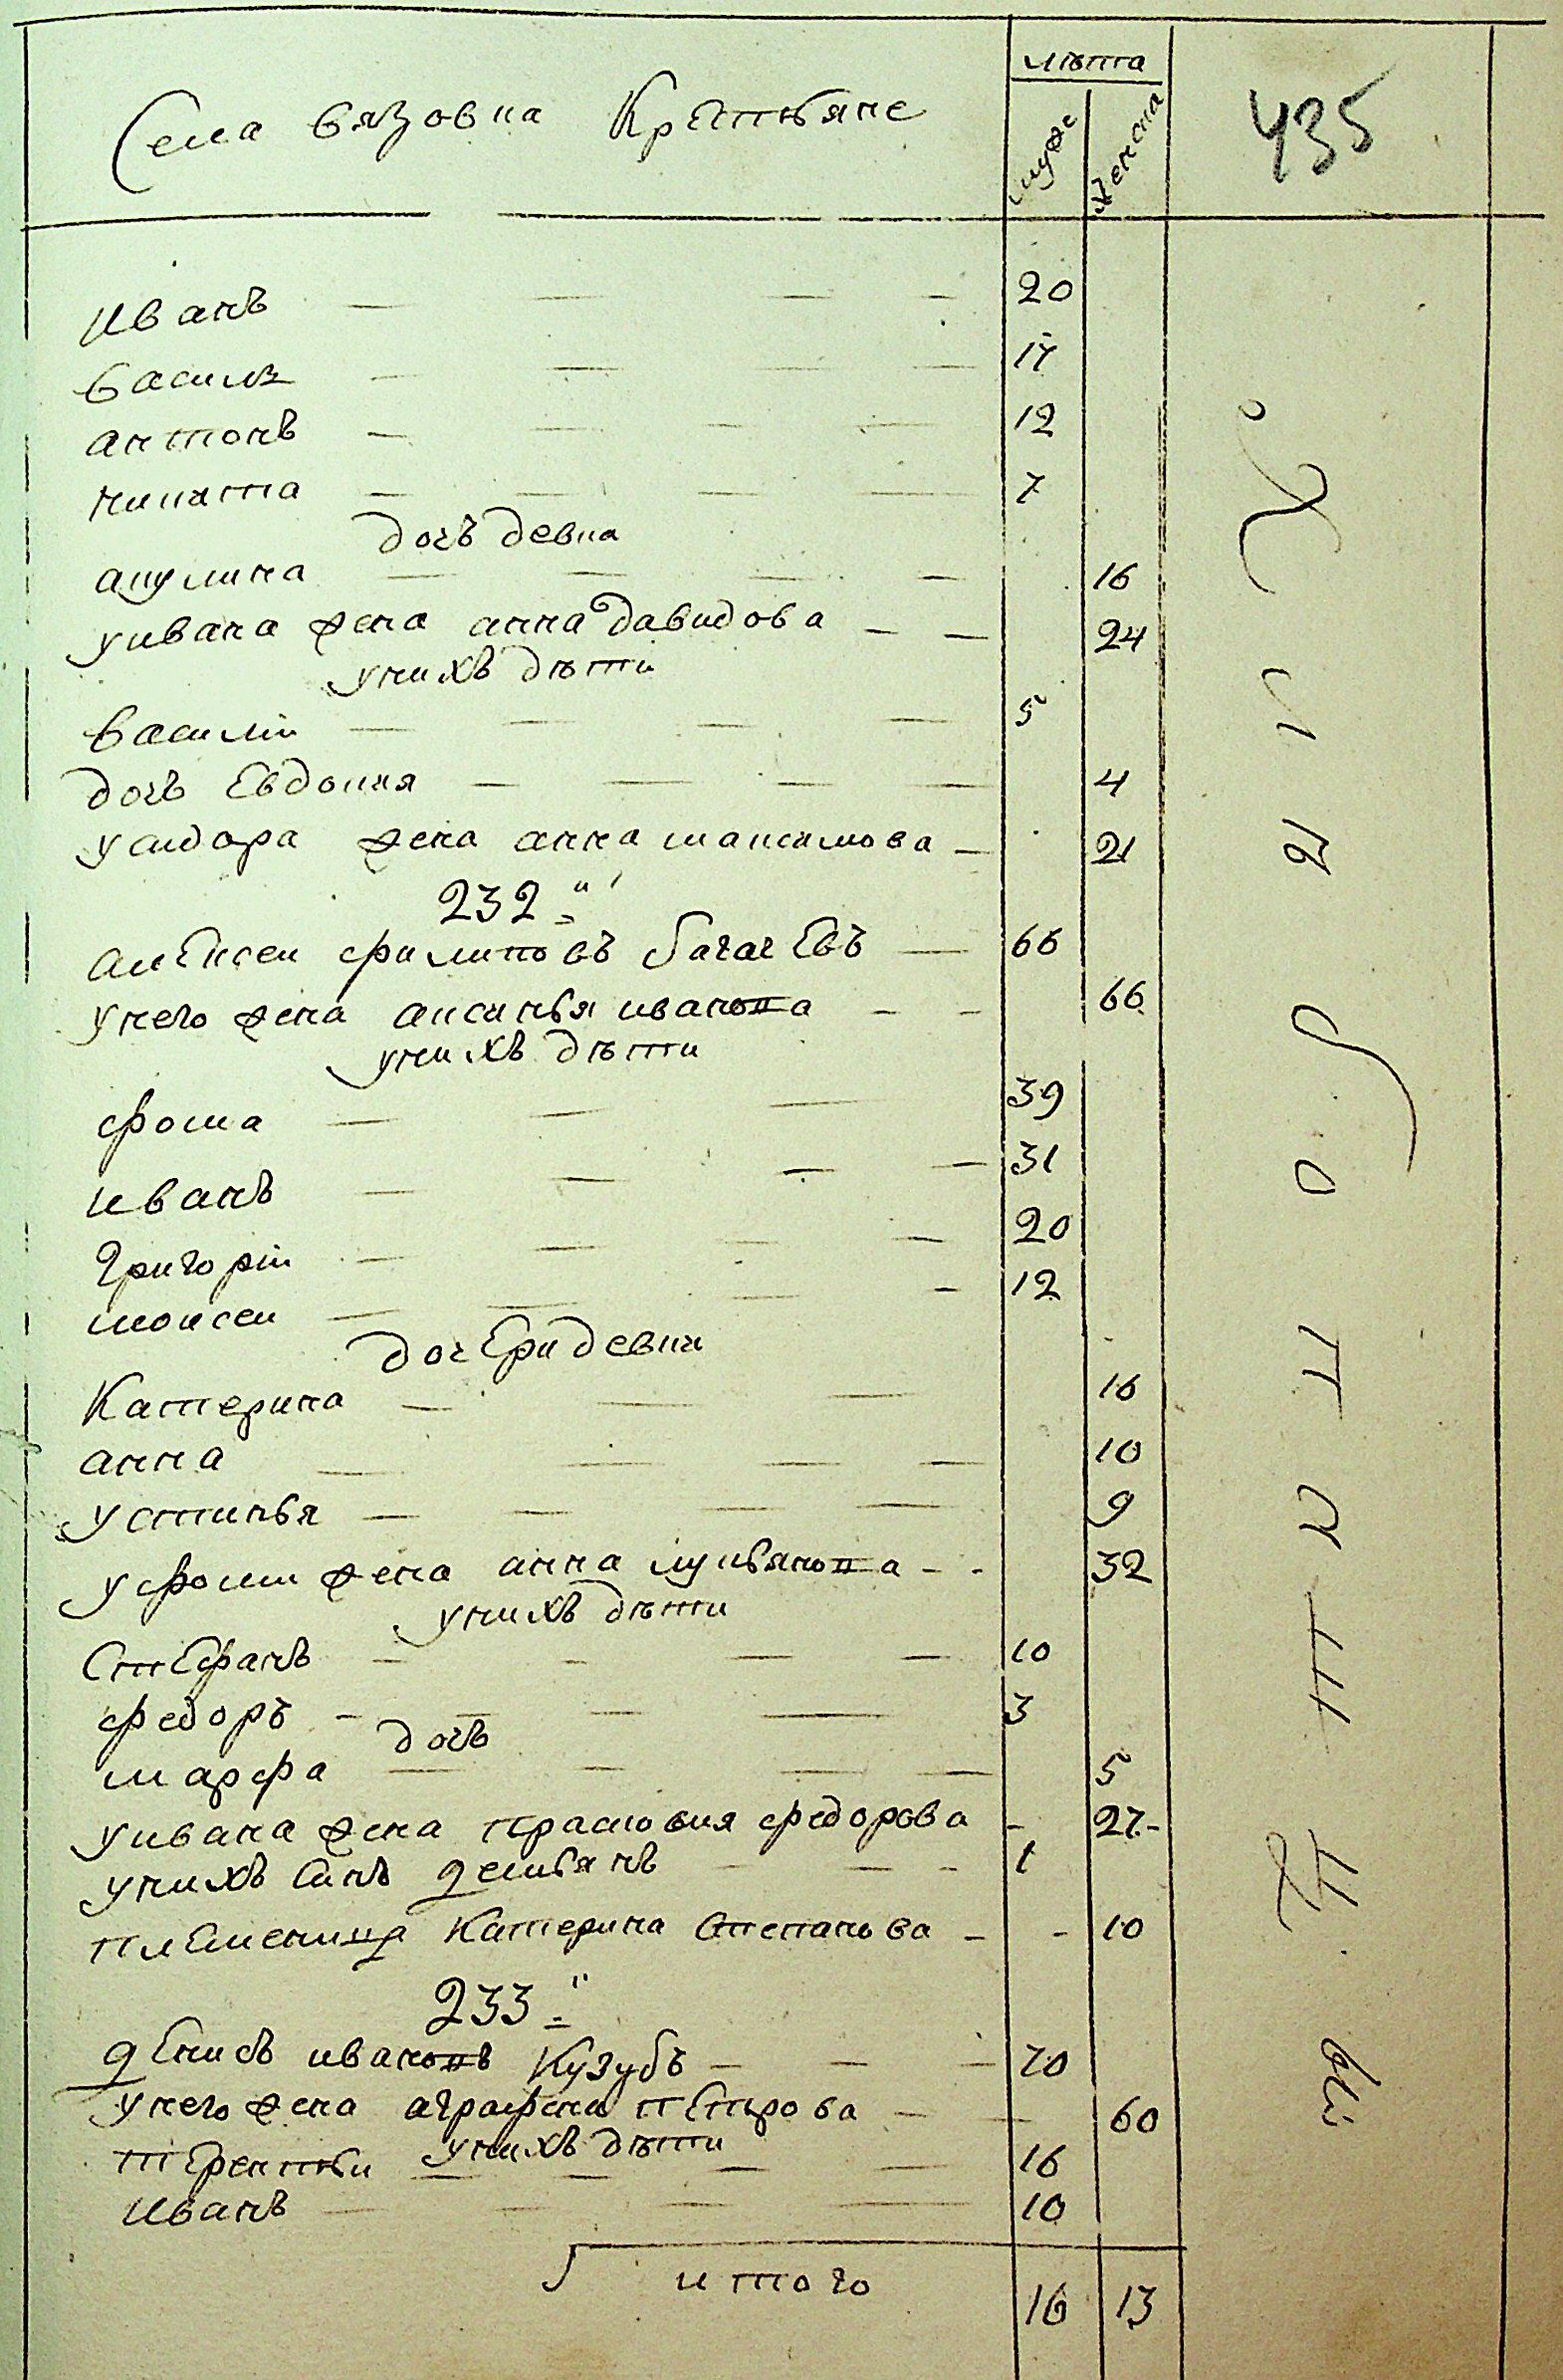 лѣта
Села вязовка Крестьяне
муже
женска
435
иванъ 20
василе 17
антонъ 12
никита 7
дочъ девка
акулина 16
уивана жена анна давидова 24
унихъ дѣти
василiй 5
дочъ Евдокия 4
усидора жена анна максимова 21
232
алексеи филиповъ багачевъ 66
унего жена аксинья иванова 66
унихъ дѣти
фома 39
иванъ 31
григорiй 20
моисеи 12
дочери девки
катерина 16
анна 10
устинья 9
уфомы жена анна лукьянова 32
унихъ дѣти
стефанъ 10
федоръ 3
дочъ
марфа 5
уивана жена прасковия федорова 27
унихъ синъ демьянъ 1
племеница катерина степанова 10
233
денисъ ивановъ кузубъ 70
унего жена аграфена петрова 60
унихъ дѣти
терентьи 16
иванъ 10
итого 16 13